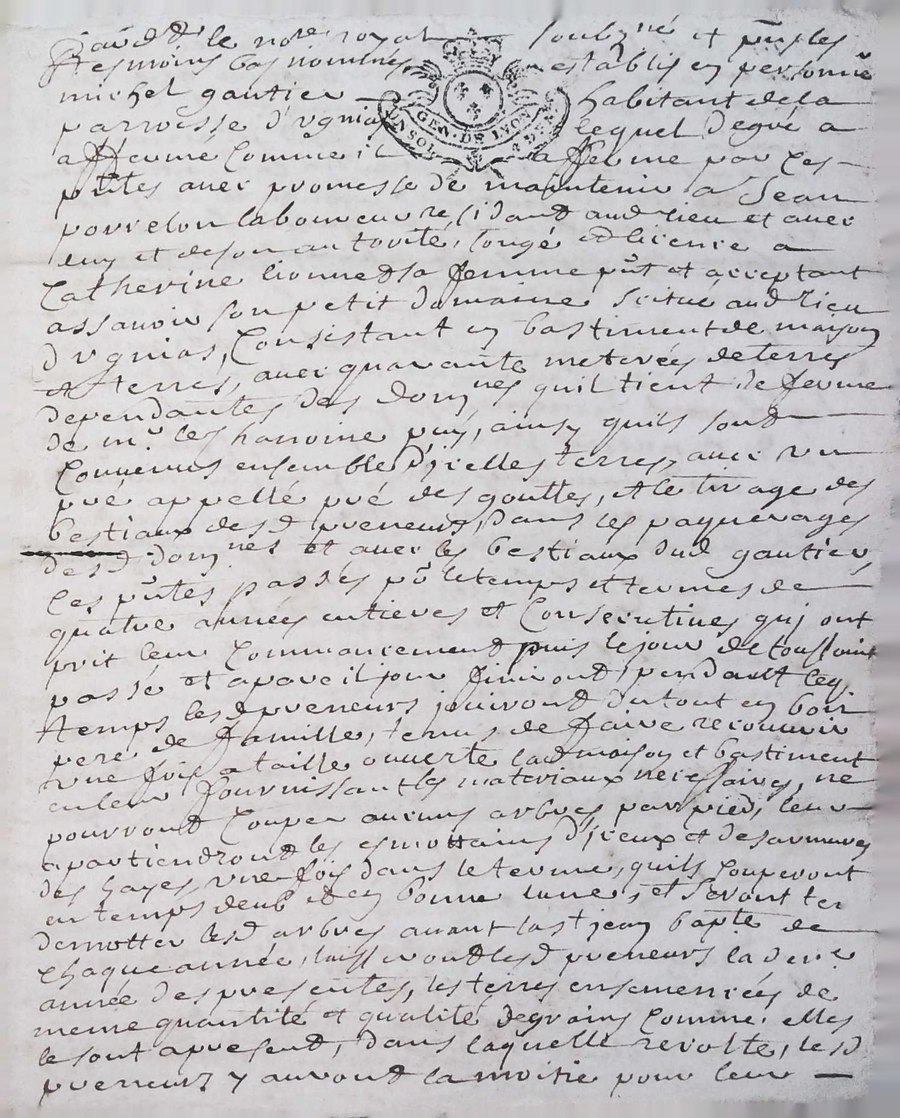 le no.re royal soubz.né et p̃ntes
tesmoins bas nommés, establis en personne
michel gautier — habitant de la
GEN. DE LYON
UN SOL 4 DEN
parroisse d'vgnias lequel de gré a
affermé comme il afferme par ces
p̃ntes avec promesse de maintenir a Jean
porrelon laboureur residant aud lieu et avec
luy et de son autorité, congé et licence a
Catherine lionnet sa femme p̃nt et acceptant
assavoir son petit domaine scitué aud lieu
d'vgnias, Consistant en bastiment de maison
et terres, avec quarante meterées de terres
dependantes des dom.nes qu'il tient de ferme
de m.r le chanoine puy, ainsy quils sont
Convenus ensemble d'icelles terres, avec vn
pré appellé pré des gouttes, et le tirage des
bestiaux desd preneurs, dans les paquerages
desd dom.nes et avec les bestiaux dud gautier,
Ces p̃ntes passés p̃ le temps et termes de
quatre années entieres et Consecutives qui ont
prit leur Commancement puis le jour de toussaint
passé et a pareil jour finiront, pendant leq.
temps lesd preneurs jouiront du tout en bon
pere de famille, tenus de faire recouvrir
vne fois a taille ouverte lad maison et bastiment
en leur fournissant les materiaux necessaires, ne
pourront Couper aucuns arbres par pied, leur
apartiendront les esmottains d'iceux et des armures
des hayes, vne fois dans le terme, quils couperont
en temps deub et en bonne lune, et seront
demotter lesd arbres avant la st jean bap.te de
chaque année, laisseront lesd preneurs la der.e
année des presentes, les terres ensemencées de
meme quantité et qualité de grains comme elles
le sont apresent, dans laquelle revolte, lesd
preneurs y auront la moitié pour leur —